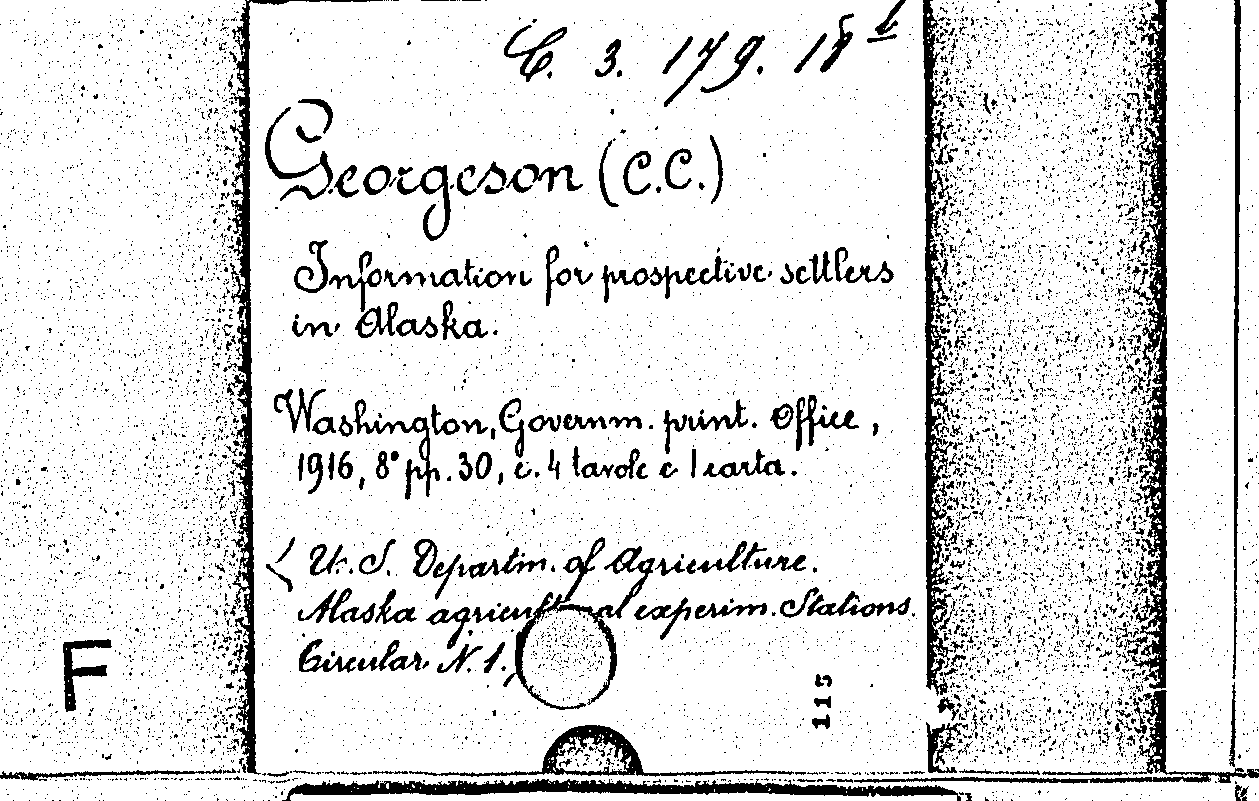 C. 3. 179. 18
Georgeson (C.C.)
Information for prospective settlers
in Alaska.
Washington, Governm. print. Office,
1916, 8° pp. 30, c. 4 tavole e 1 carta.
( U. S. Departm. of Agriculture.
Alaska agricultural experim. Stations.
Circular N. 1.)
F
115